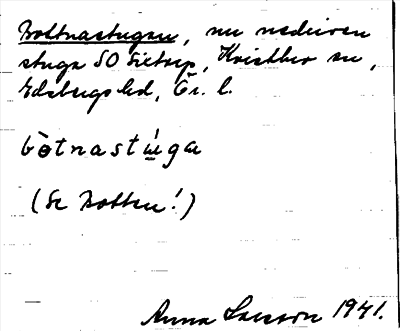 Bottnastugan, nu nedriven
stuga SO Tictorp, Kvistbro sn,
Edsbergs hd, Ör. l.
bòtnastú̱ga
(Se Botten!)
Anna Larsson 1941.